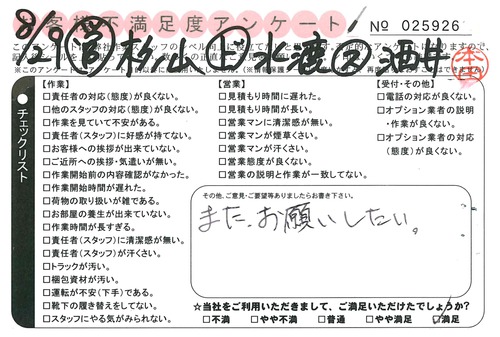 お客様不満足度アンケート
No 025926
8/9
杉山
水鹿
酒井
本
チェックリスト
【作業】
□責任者の対応(態度)が良くない。
□他のスタッフの対応(態度)が良くない。
□作業を見ていて不安がある。
□責任者(スタッフ)に好感が持てない。
□お客様への挨拶が出来ていない。
□ご近所への挨拶・気遣いが無い。
□作業開始前の内容確認がなかった。
□作業開始時間が遅れた。
□荷物の取り扱いが雑である。
□お部屋の養生が出来ていない。
□作業時間が長すぎる。
□責任者(スタッフ)に清潔感が無い。
□責任者(スタッフ)が汗さい。
□トラックが汚い。
□梱包資材が汚い。
□運転が不安(下手)である。
□靴下の履き替えをしてない。
□スタッフにやる気がみられない。
【営業】
□見積もり時間に遅れた。
□見積もり時間が長い。
□営業マンに清潔感が無い。
□営業マンが煙草くさい。
□営業マンが汗さい。
□営業態度が良くない。
□営業の説明と作業が一致してない。
【受付・その他】
□電話の対応が良くない。
□オプション業者の説明
・作業が良くない。
□オプション業者の対応
(態度)が良くない。
その他、ご意見・ご要望等ありましたらお書き下さい。
また、お願いしたい。
☆当社をご利用いただきまして、ご満足いただけたでしょうか?
□不満 □やや不満 □普通 □やや満足 ☑満足